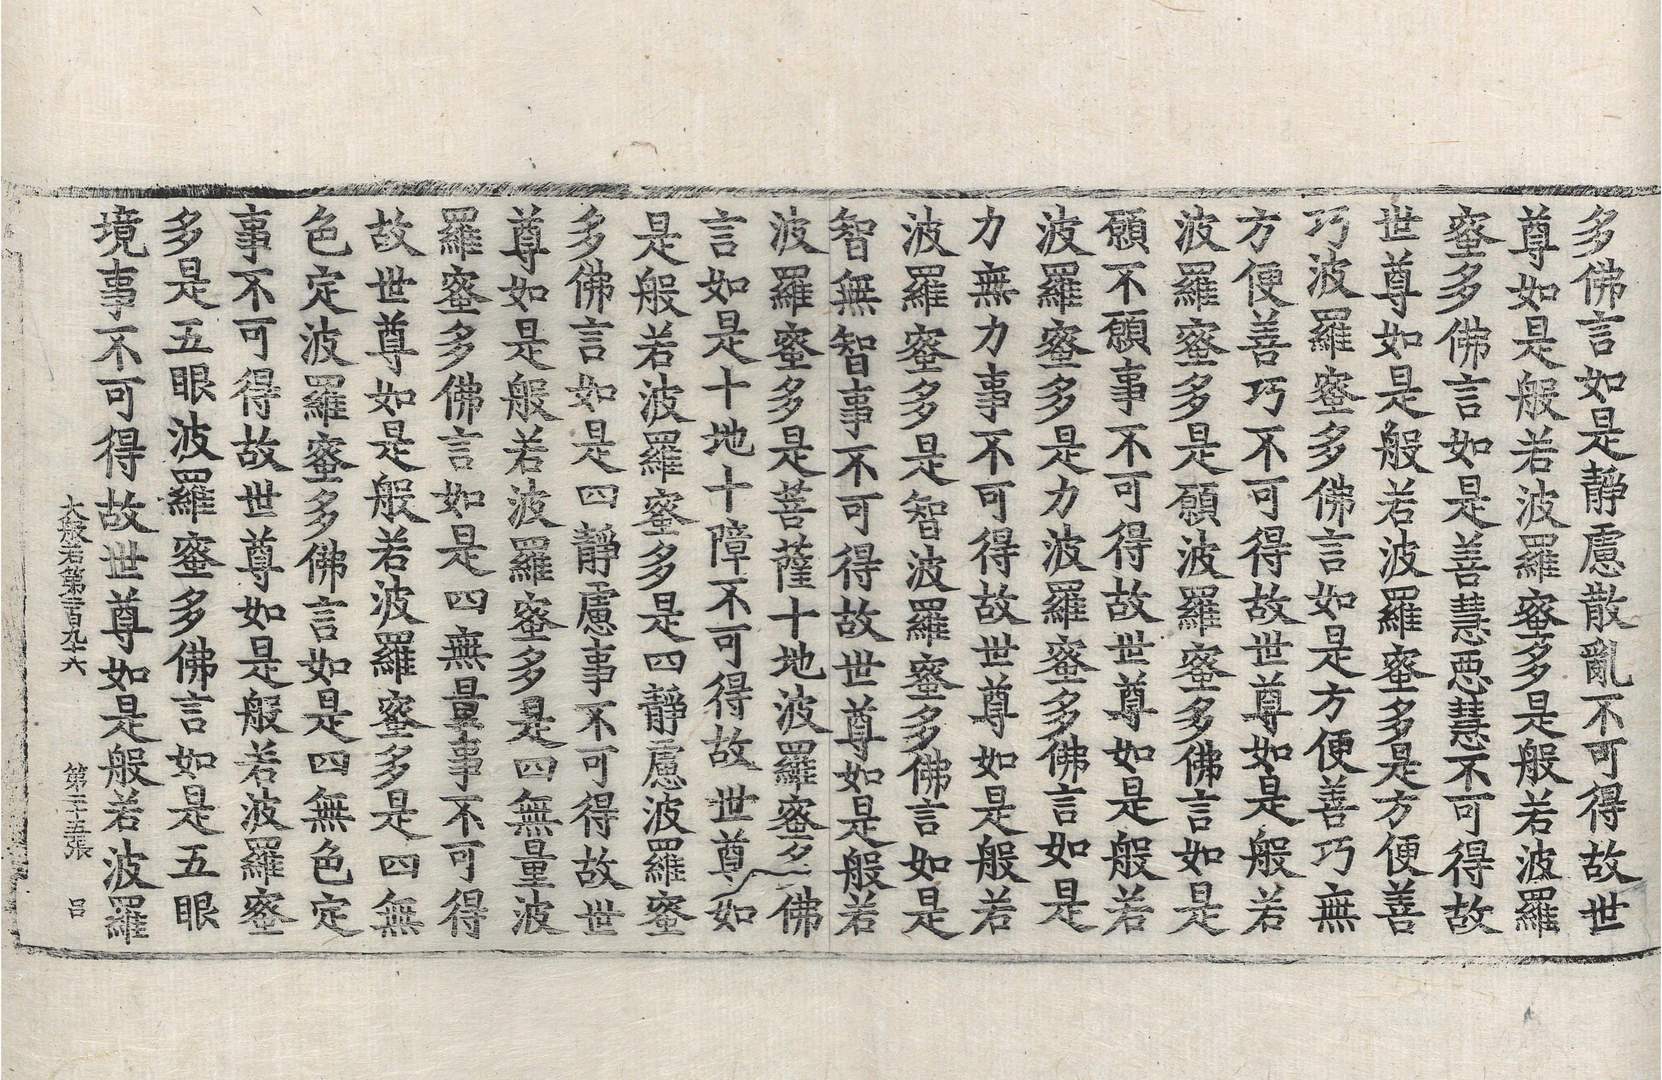 多佛言如是靜慮散亂不可得故世
尊如是般若波羅蜜多是般若波羅
蜜多佛言如是善慧惡慧不可得故
世尊如是般若波羅蜜多是方便善
巧波羅蜜多佛言如是方便善巧無
方便善巧不可得故世尊如是般若
波羅蜜多是願波羅蜜多佛言如是
願不願事不可得故世尊如是般若
波羅蜜多是力波羅蜜多佛言如是
力無力事不可得故世尊如是般若
波羅蜜多是智波羅蜜多佛言如是
智無智事不可得故世尊如是般若
波羅蜜多是菩薩十地波羅蜜多佛
言如是十地十障不可得故世尊如
是般若波羅蜜多是四靜慮波羅蜜
多佛言如是四靜慮事不可得故世
尊如是般若波羅蜜多是四無量波
羅蜜多佛言如是四無量事不可得
故世尊如是般若波羅蜜多是四無
色定波羅蜜多佛言如是四無色定
事不可得故世尊如是般若波羅蜜
多是五眼波羅蜜多佛言如是五眼
境事不可得故世尊如是般若波羅
大般若第二百九十六 第二十五張 呂